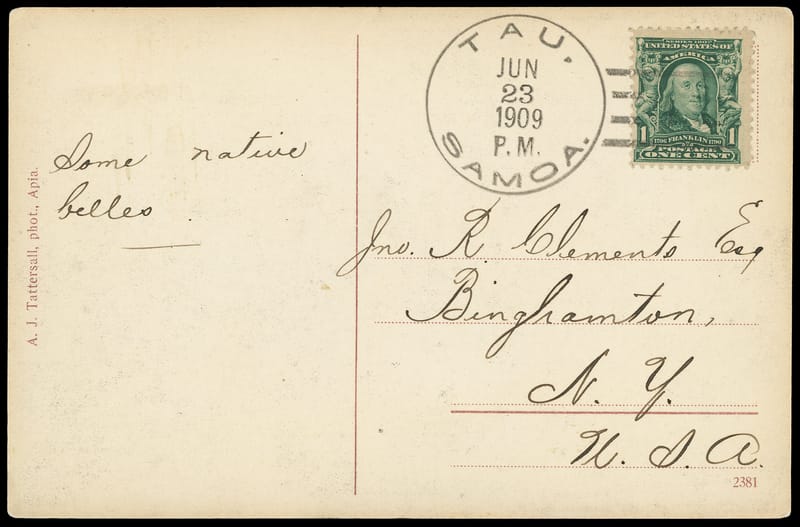 TAU.
JUN
23
1909
P. M.
SAMOA.
SERIES 1902
UNITED STATES OF
AMERICA
1 1706 FRANKLIN 1790 1
POSTAGE
ONE CENT
Some native
belles.
A. J. Tattersall, phot., Apia.
Jno. R. Clements Esq
Binghamton,
N. Y.
U. S. A.
2381